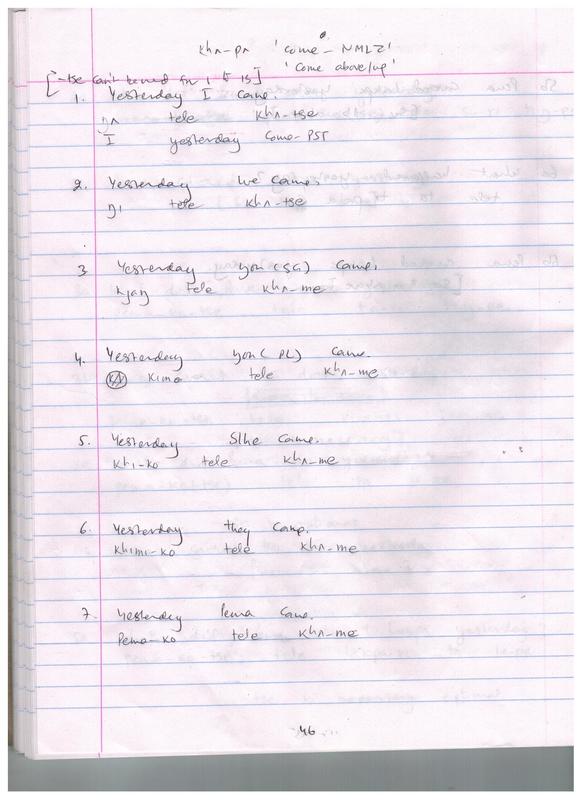 khʌ-pʌ 'come-NMLZ'
'come above/up'
[-tse can't be used for 1 & 1s]
1. Yesterday I came.
ŋʌ tele khʌ-tse
I yesterday come-PST
2. Yesterday we came.
ŋi tele khʌ-tse
3 Yesterday you (SG) came.
kjaŋ tele khʌ-me
4. Yesterday you (PL) came.
kimo tele khʌ-me
5. Yesterday S/he came.
khi-ko tele khʌ-me
6. Yesterday they came.
khimi-ko tele khʌ-me
7. Yesterday Pema came.
Pema-ko tele khʌ-me
46